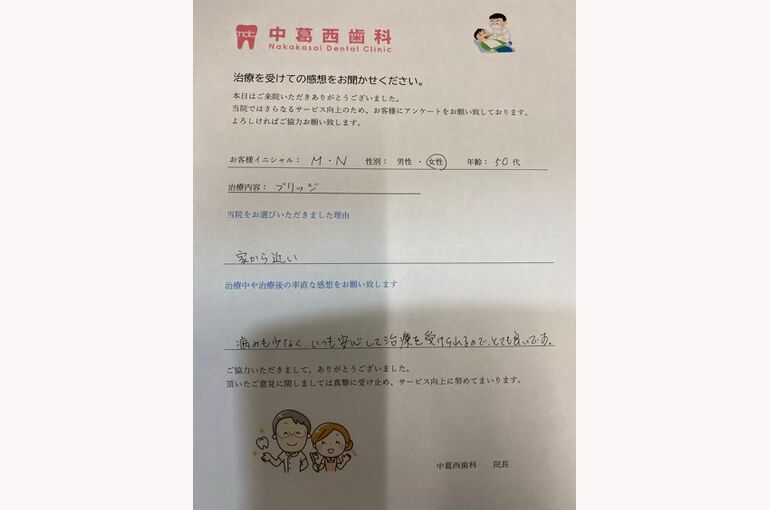 ndc
中葛西歯科
Nakakasai Dental Clinic
治療を受けての感想をお聞かせください。
本日はご来院いただきありがとうございました。
当院ではさらなるサービス向上のため、お客様にアンケートをお願い致しております。
よろしければご協力お願い致します。
お客様イニシャル： M・N 性別： 男性 ・ 女性 年齢： 50 代
治療内容： ブリッジ
当院をお選びいただきました理由
家から近い
治療中や治療後の率直な感想をお願い致します
痛みも少なく、いつも安心して治療を受けられるので、とても良いです。
ご協力いただきまして、ありがとうございました。
頂いたご意見に関しましては真摯に受け止め、サービス向上に努めてまいります。
中葛西歯科 院長